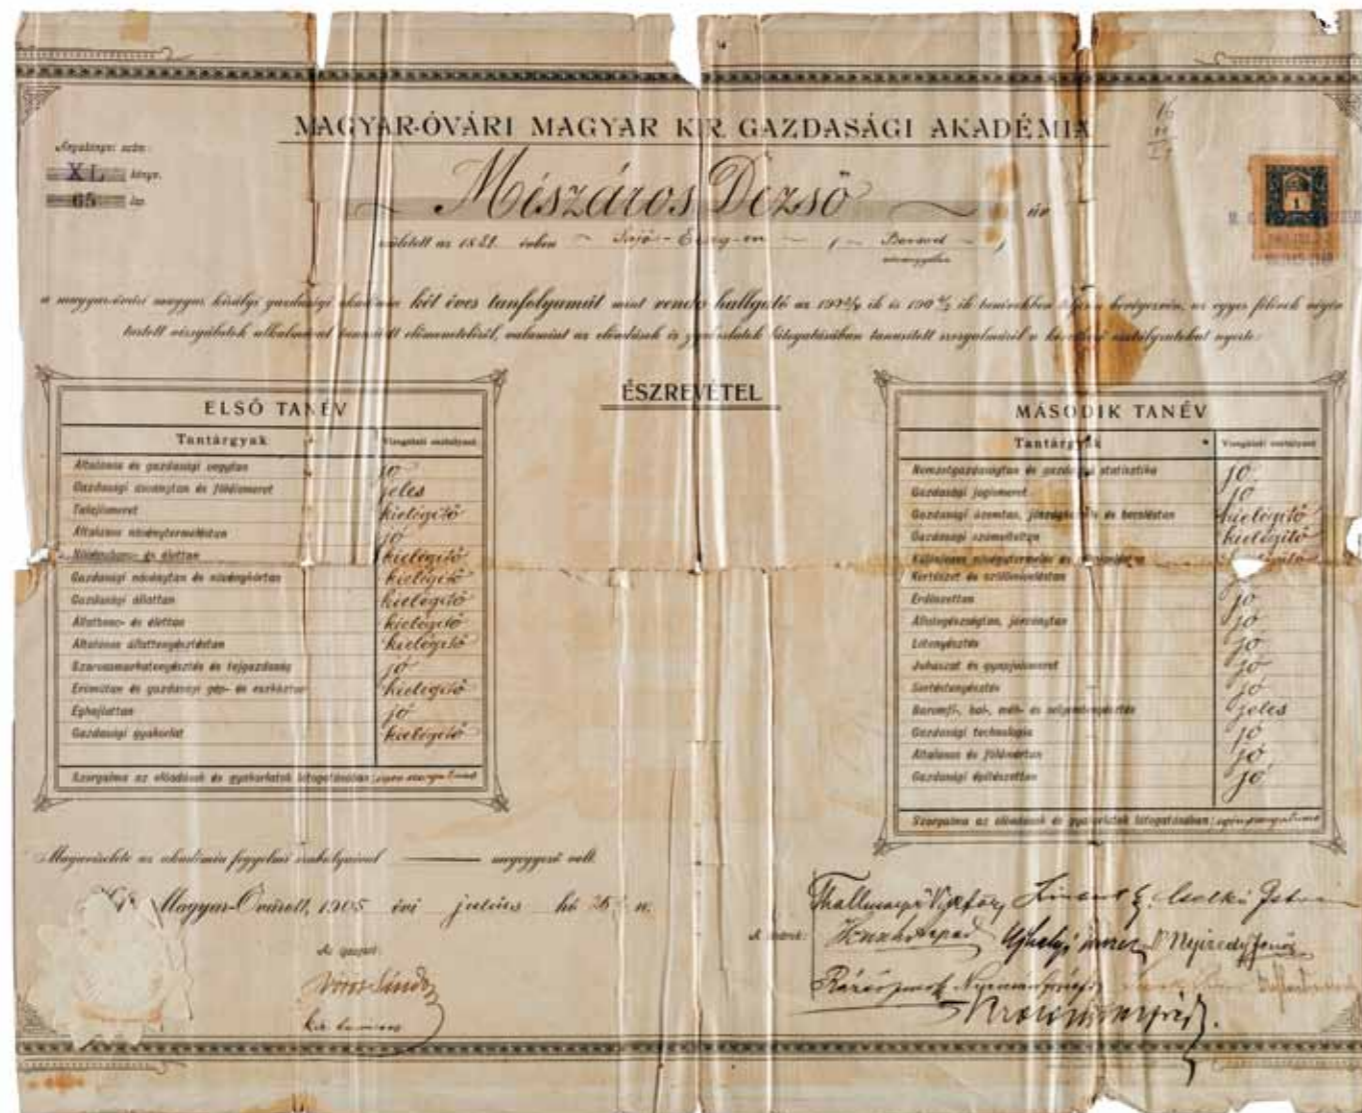 MAGYAR-ÓVÁRI MAGYAR KIR. GAZDASÁGI AKADÉMIA
Anyakönyvi szám:
XL könyv.
65 lap.
Mészáros Dezső úr
született az 188 évben Sajó- Borsod
vármegyében
a magyar-óvári magyar királyi gazdasági akadémia két éves tanfolyamát mint rendes hallgató az 190 ik és 190 ik tanévekben bevégezvén, az egyes félévek végén
tartott vizsgálatok alkalmával tanusított előmeneteléről, valamint az előadások és gyakorlatok látogatásában tanusított szorgalmáról a következő osztályzatokat nyerte:
ÉSZREVÉTEL
ELSŐ TANÉV
Tantárgyak Vizsgálati osztályzat
Általános és gazdasági vegytan jó
Gazdasági ásványtan és földismeret jeles
Talajismeret kielégítő
Általános növénytermeléstan jó
Növénybonc- és élettan kielégítő
Gazdasági növénytan és növénykórtan kielégítő
Gazdasági állattan kielégítő
Állatbonc- és élettan kielégítő
Általános állattenyésztéstan kielégítő
Szarvasmarhatenyésztés és tejgazdaság jó
Erőműtan és gazdasági gép- és eszköztan kielégítő
Éghajlattan jó
Gazdasági gyakorlat kielégítő
Szorgalma az előadások és gyakorlatok látogatásában:
MÁSODIK TANÉV
Tantárgyak Vizsgálati osztályzat
Nemzetgazdaságtan és gazdasági statisztika jó
Gazdasági jogismeret jó
Gazdasági üzemtan, és becsléstan kielégítő
Gazdasági számviteltan kielégítő
Különleges növénytermelés és
Kertészet és szőlőmíveléstan
Erdészettan jó
Állategészségtan, járványtan jó
Lótenyésztés jó
Juhászat és gyapjuismeret jó
Sertéstenyésztés jó
Baromfi-, hal-, méh- és selyemtenyésztés jeles
Gazdasági technologia jó
Általános és földmértan jó
Gazdasági építészettan jó
Szorgalma az előadások és gyakorlatok látogatásában:
Magaviselete az akadémia fegyelmi szabályaival megegyező volt.
Magyar-Óvárott, 1905 évi julius hó n.
Az igazgató:
Vörös Sándor
A tanárok:
Thallmayer Viktor Cselkó István
Újhelyi Imre Dr Nyiredy Jenő
1